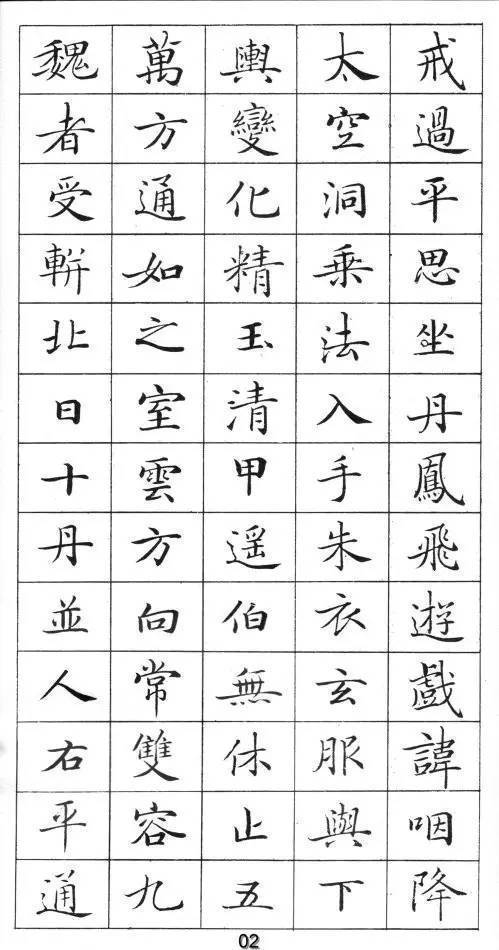 戒過平思坐丹鳳飛遊戲諱咽降
太空洞乘法入手朱衣玄服與下
輿變化精玉清甲遥伯無休止五
萬方通如之室雲方向常雙容九
魏者受軿北日十丹並人右平通
02